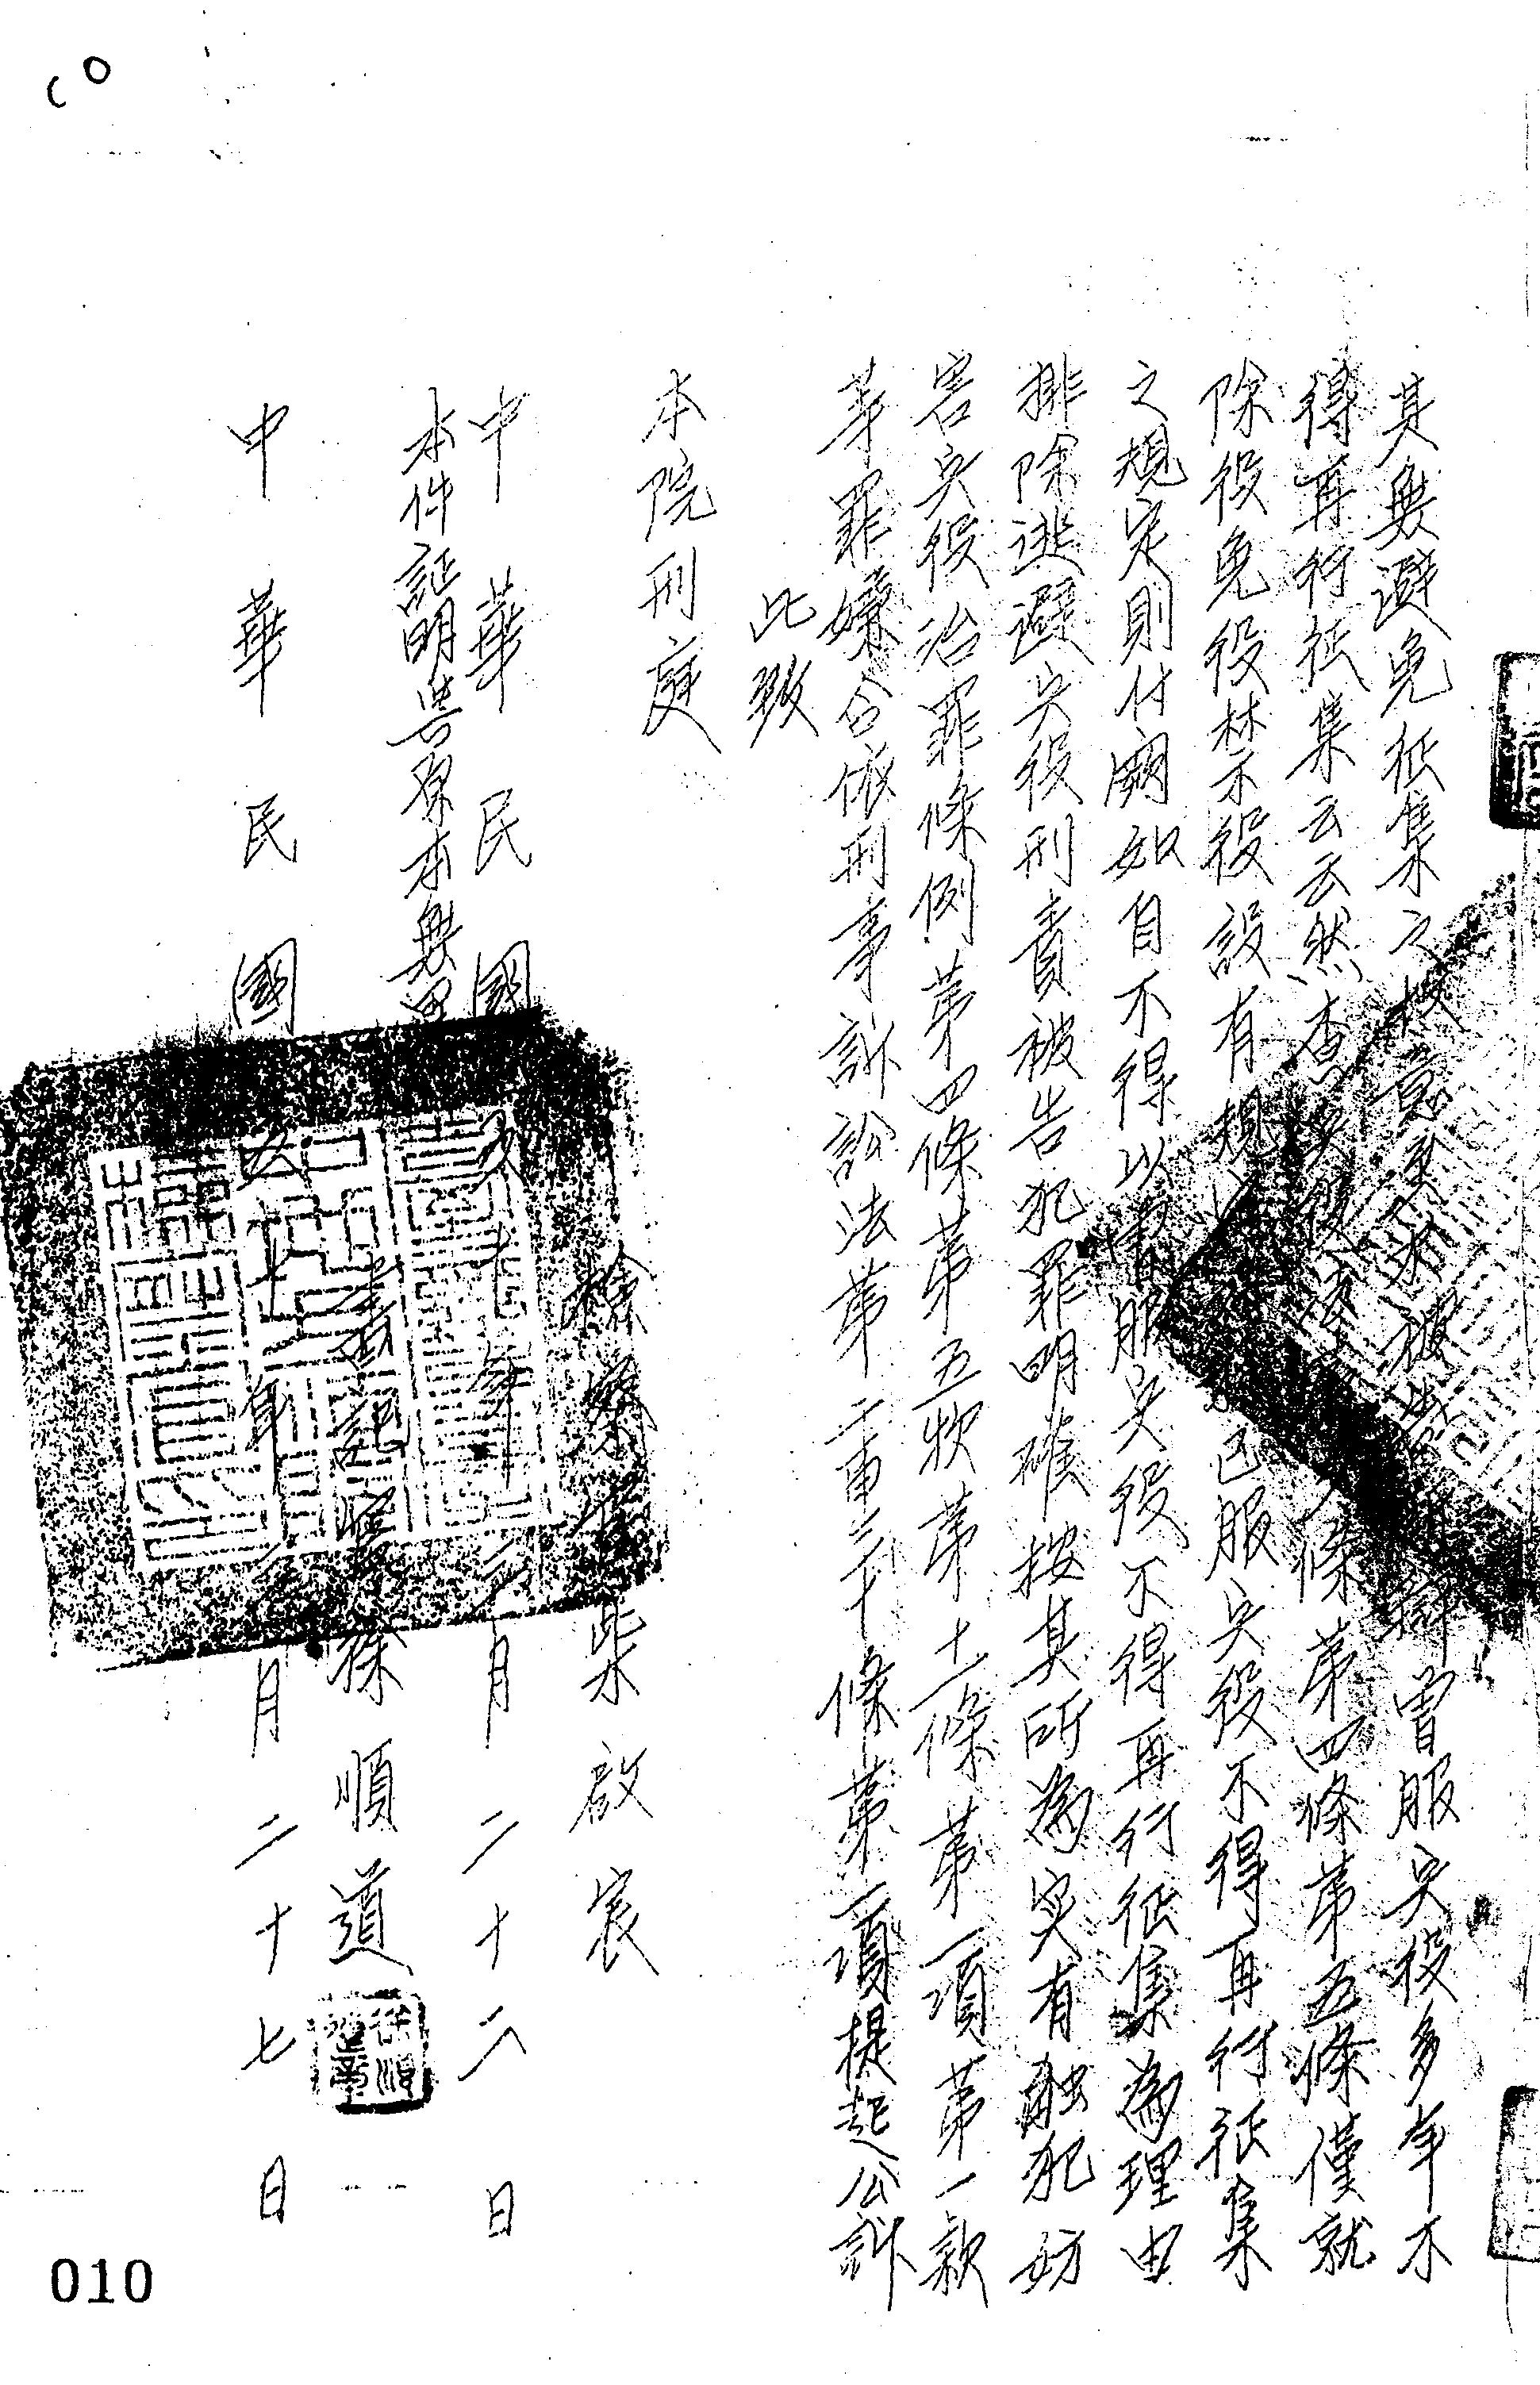 其無避免征集之故意至於被告辯曾服兵役多年不
得再行征集云云然查兵役法條第四條第五條僅就
除役免役禁役設有規已服兵役不得再行征集
之規定則付闕如自不得以曾服兵役不得再行征集為理由
排除逃避兵役刑責被告犯罪明確按其所為实有触犯妨
害兵役治罪條例第四條第五款第十一條第一項第一款
等罪嫌合依刑事訴訟法第二百三十條第一項提起公訴
此致
本院刑庭
檢察官柴啟宸
中華民國五十年月二十二日
本件証明與原本無異
書記官徐順道
中華民國五十年月二十七日
010